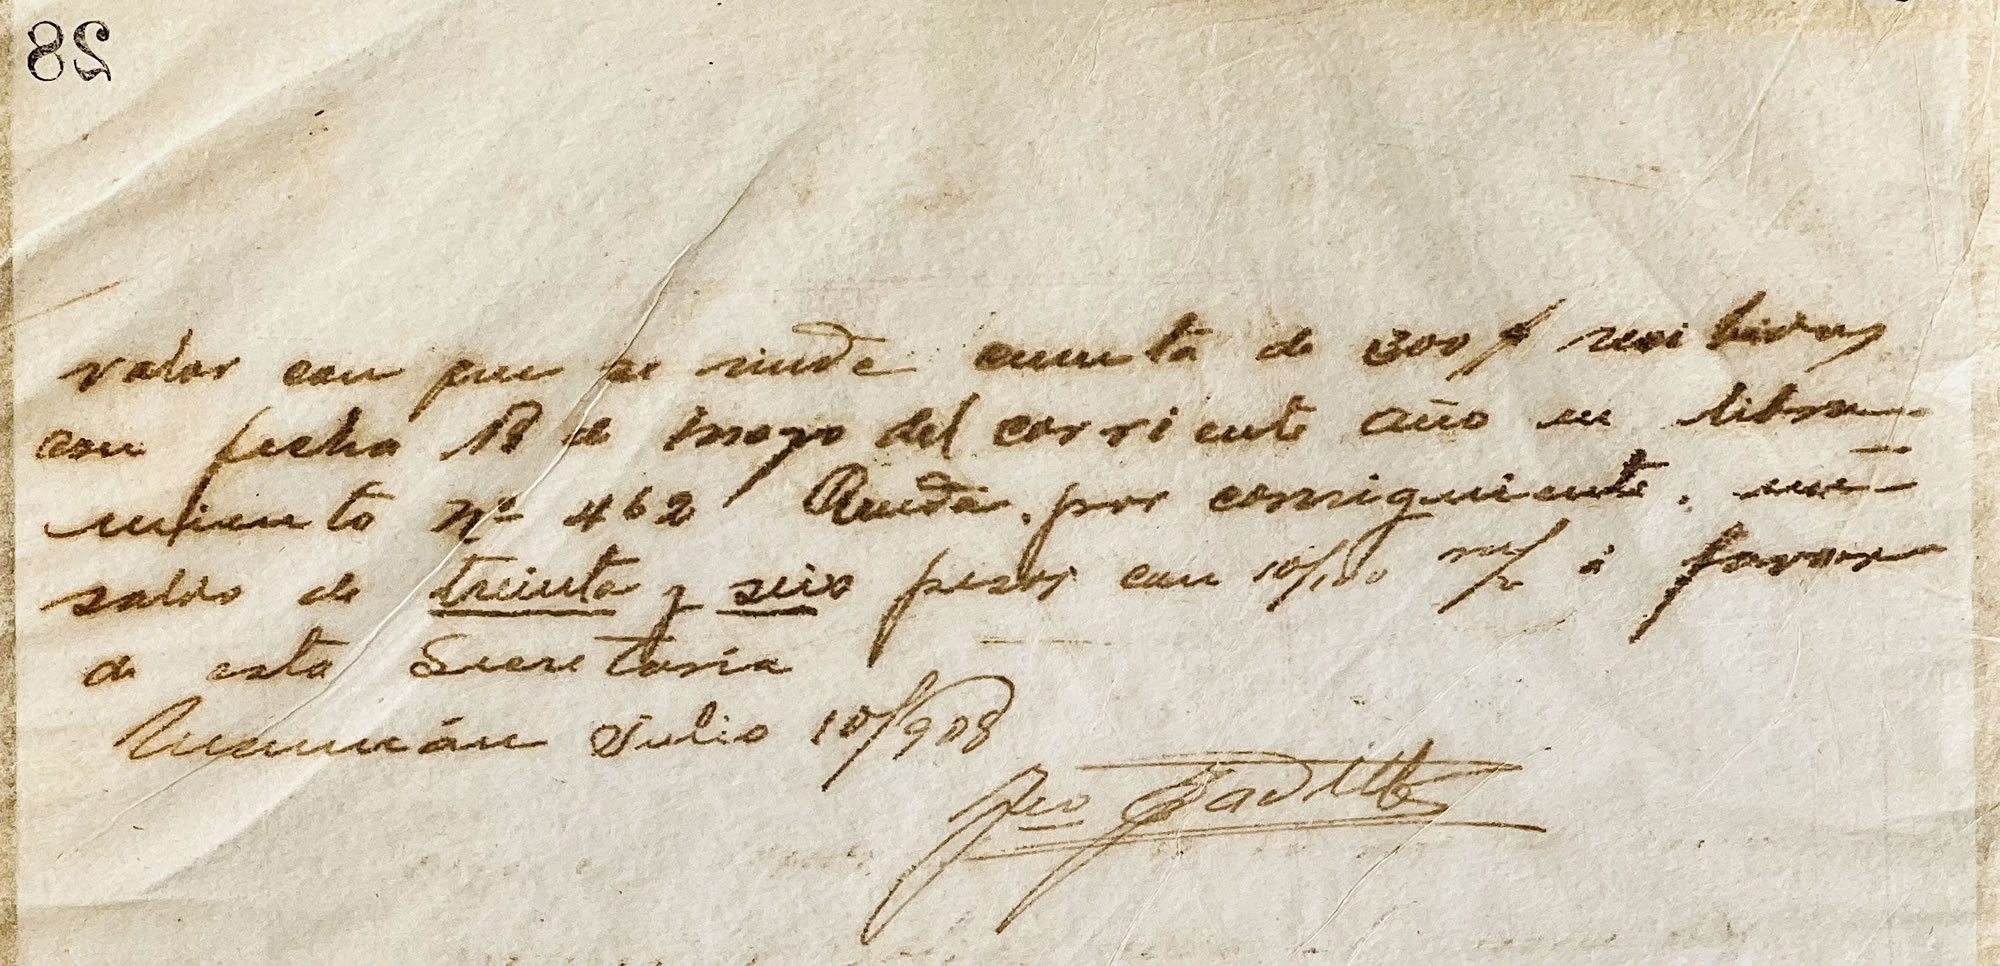 28
valor con que se rinde cuenta de 300 $ recibidos
con fecha 18 de mayo del corriente año en libra-
miento Nº 462 Queda, por consiguiente, un
saldo de treinta y seis pesos con 10/100 m/n á favor
de esta Secretaría
Tucumán Julio 10/908
Fco Padilla